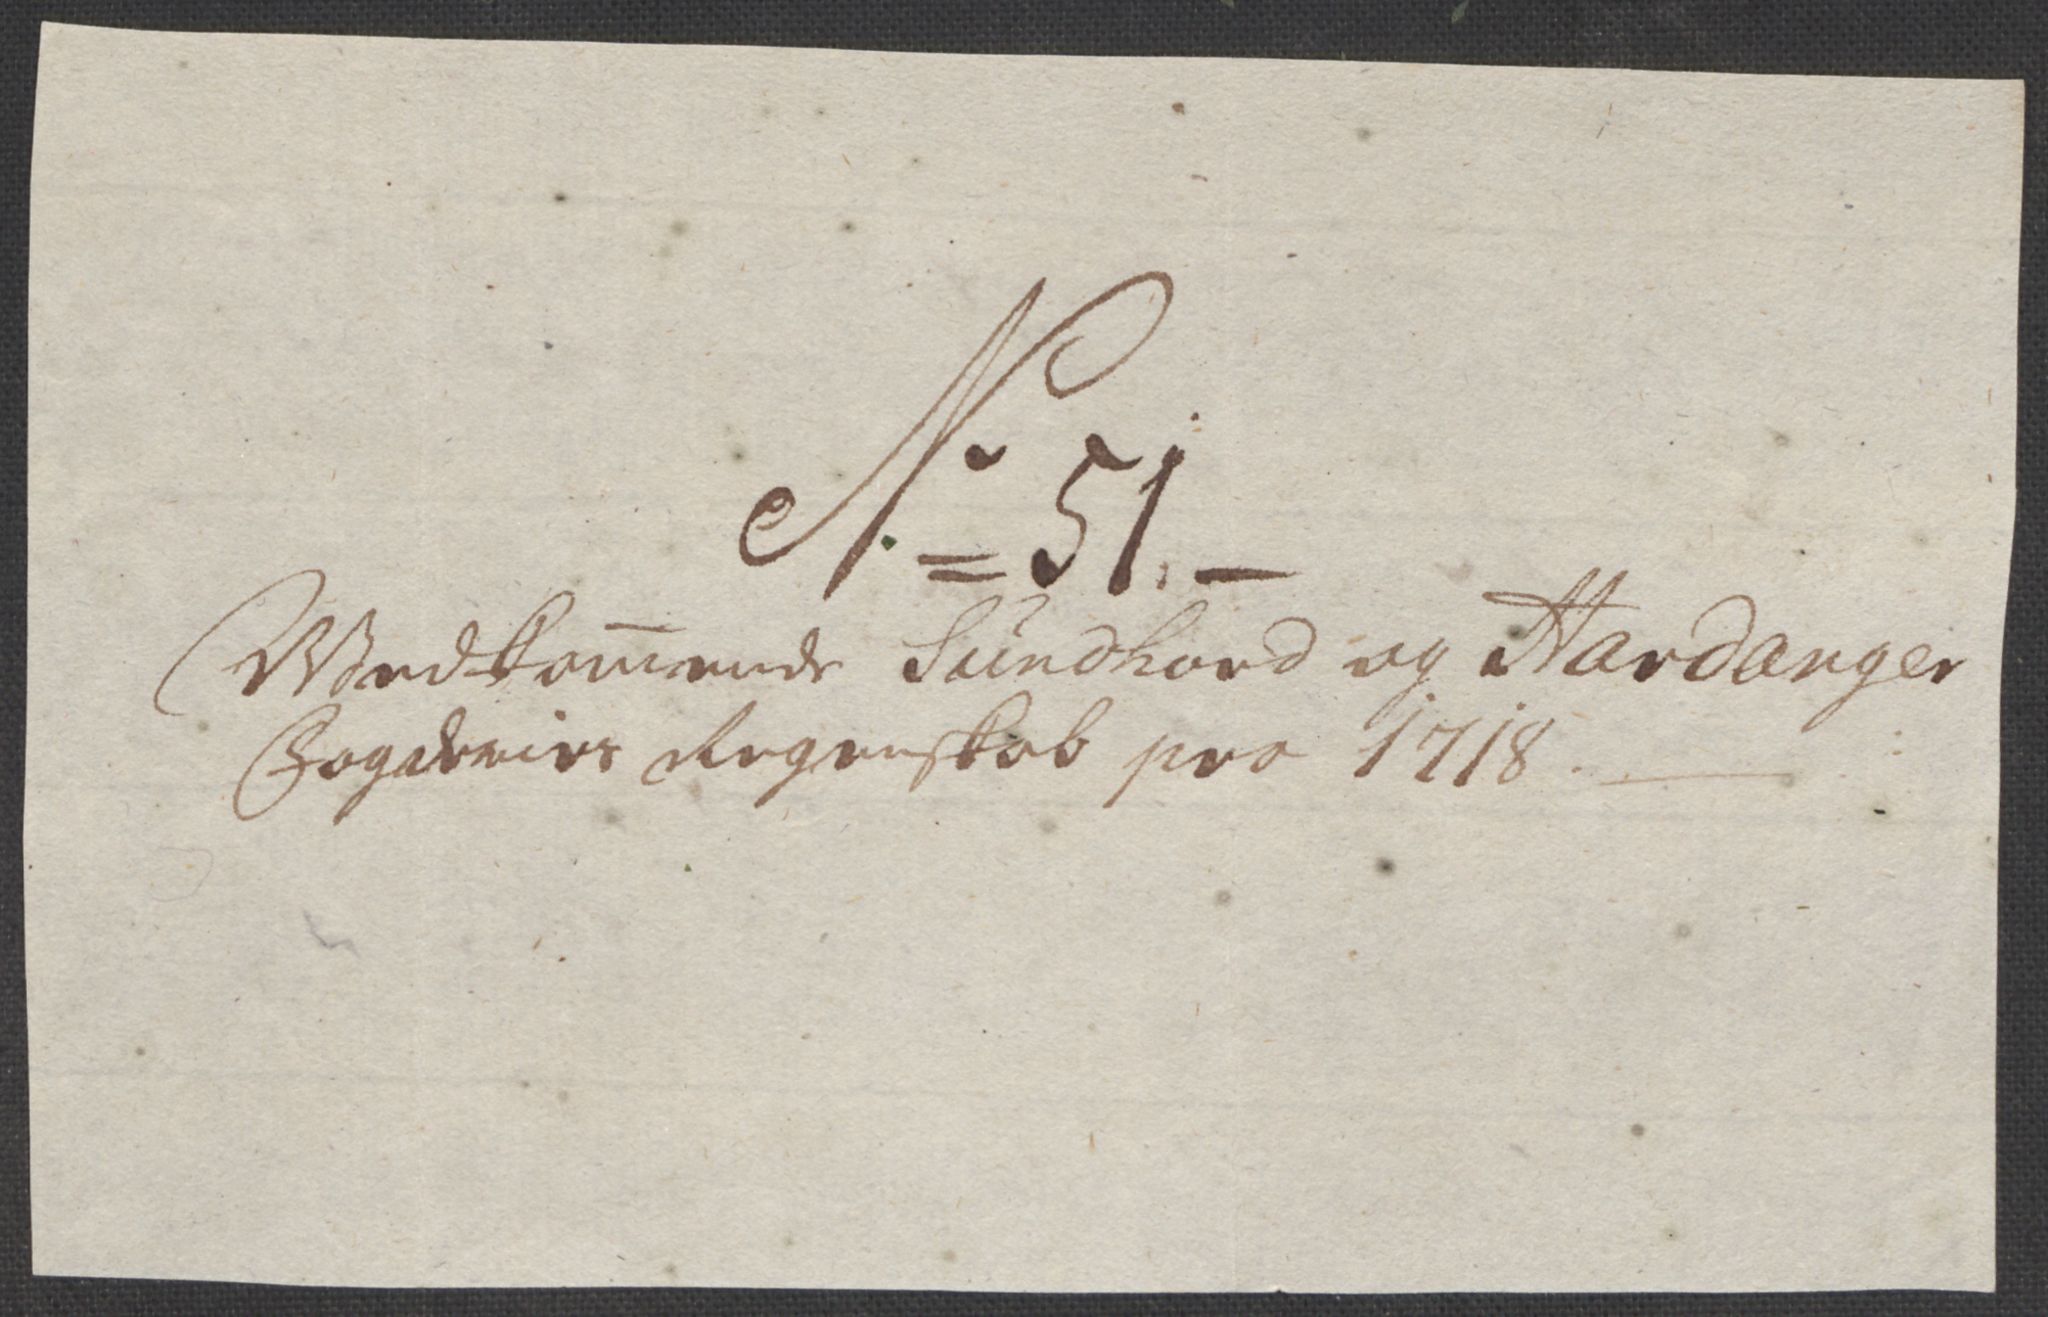 No = 51. —
Wedkom̄ende Sundhord og Hardanger
Fogderiers Regenskab pro 1718. —